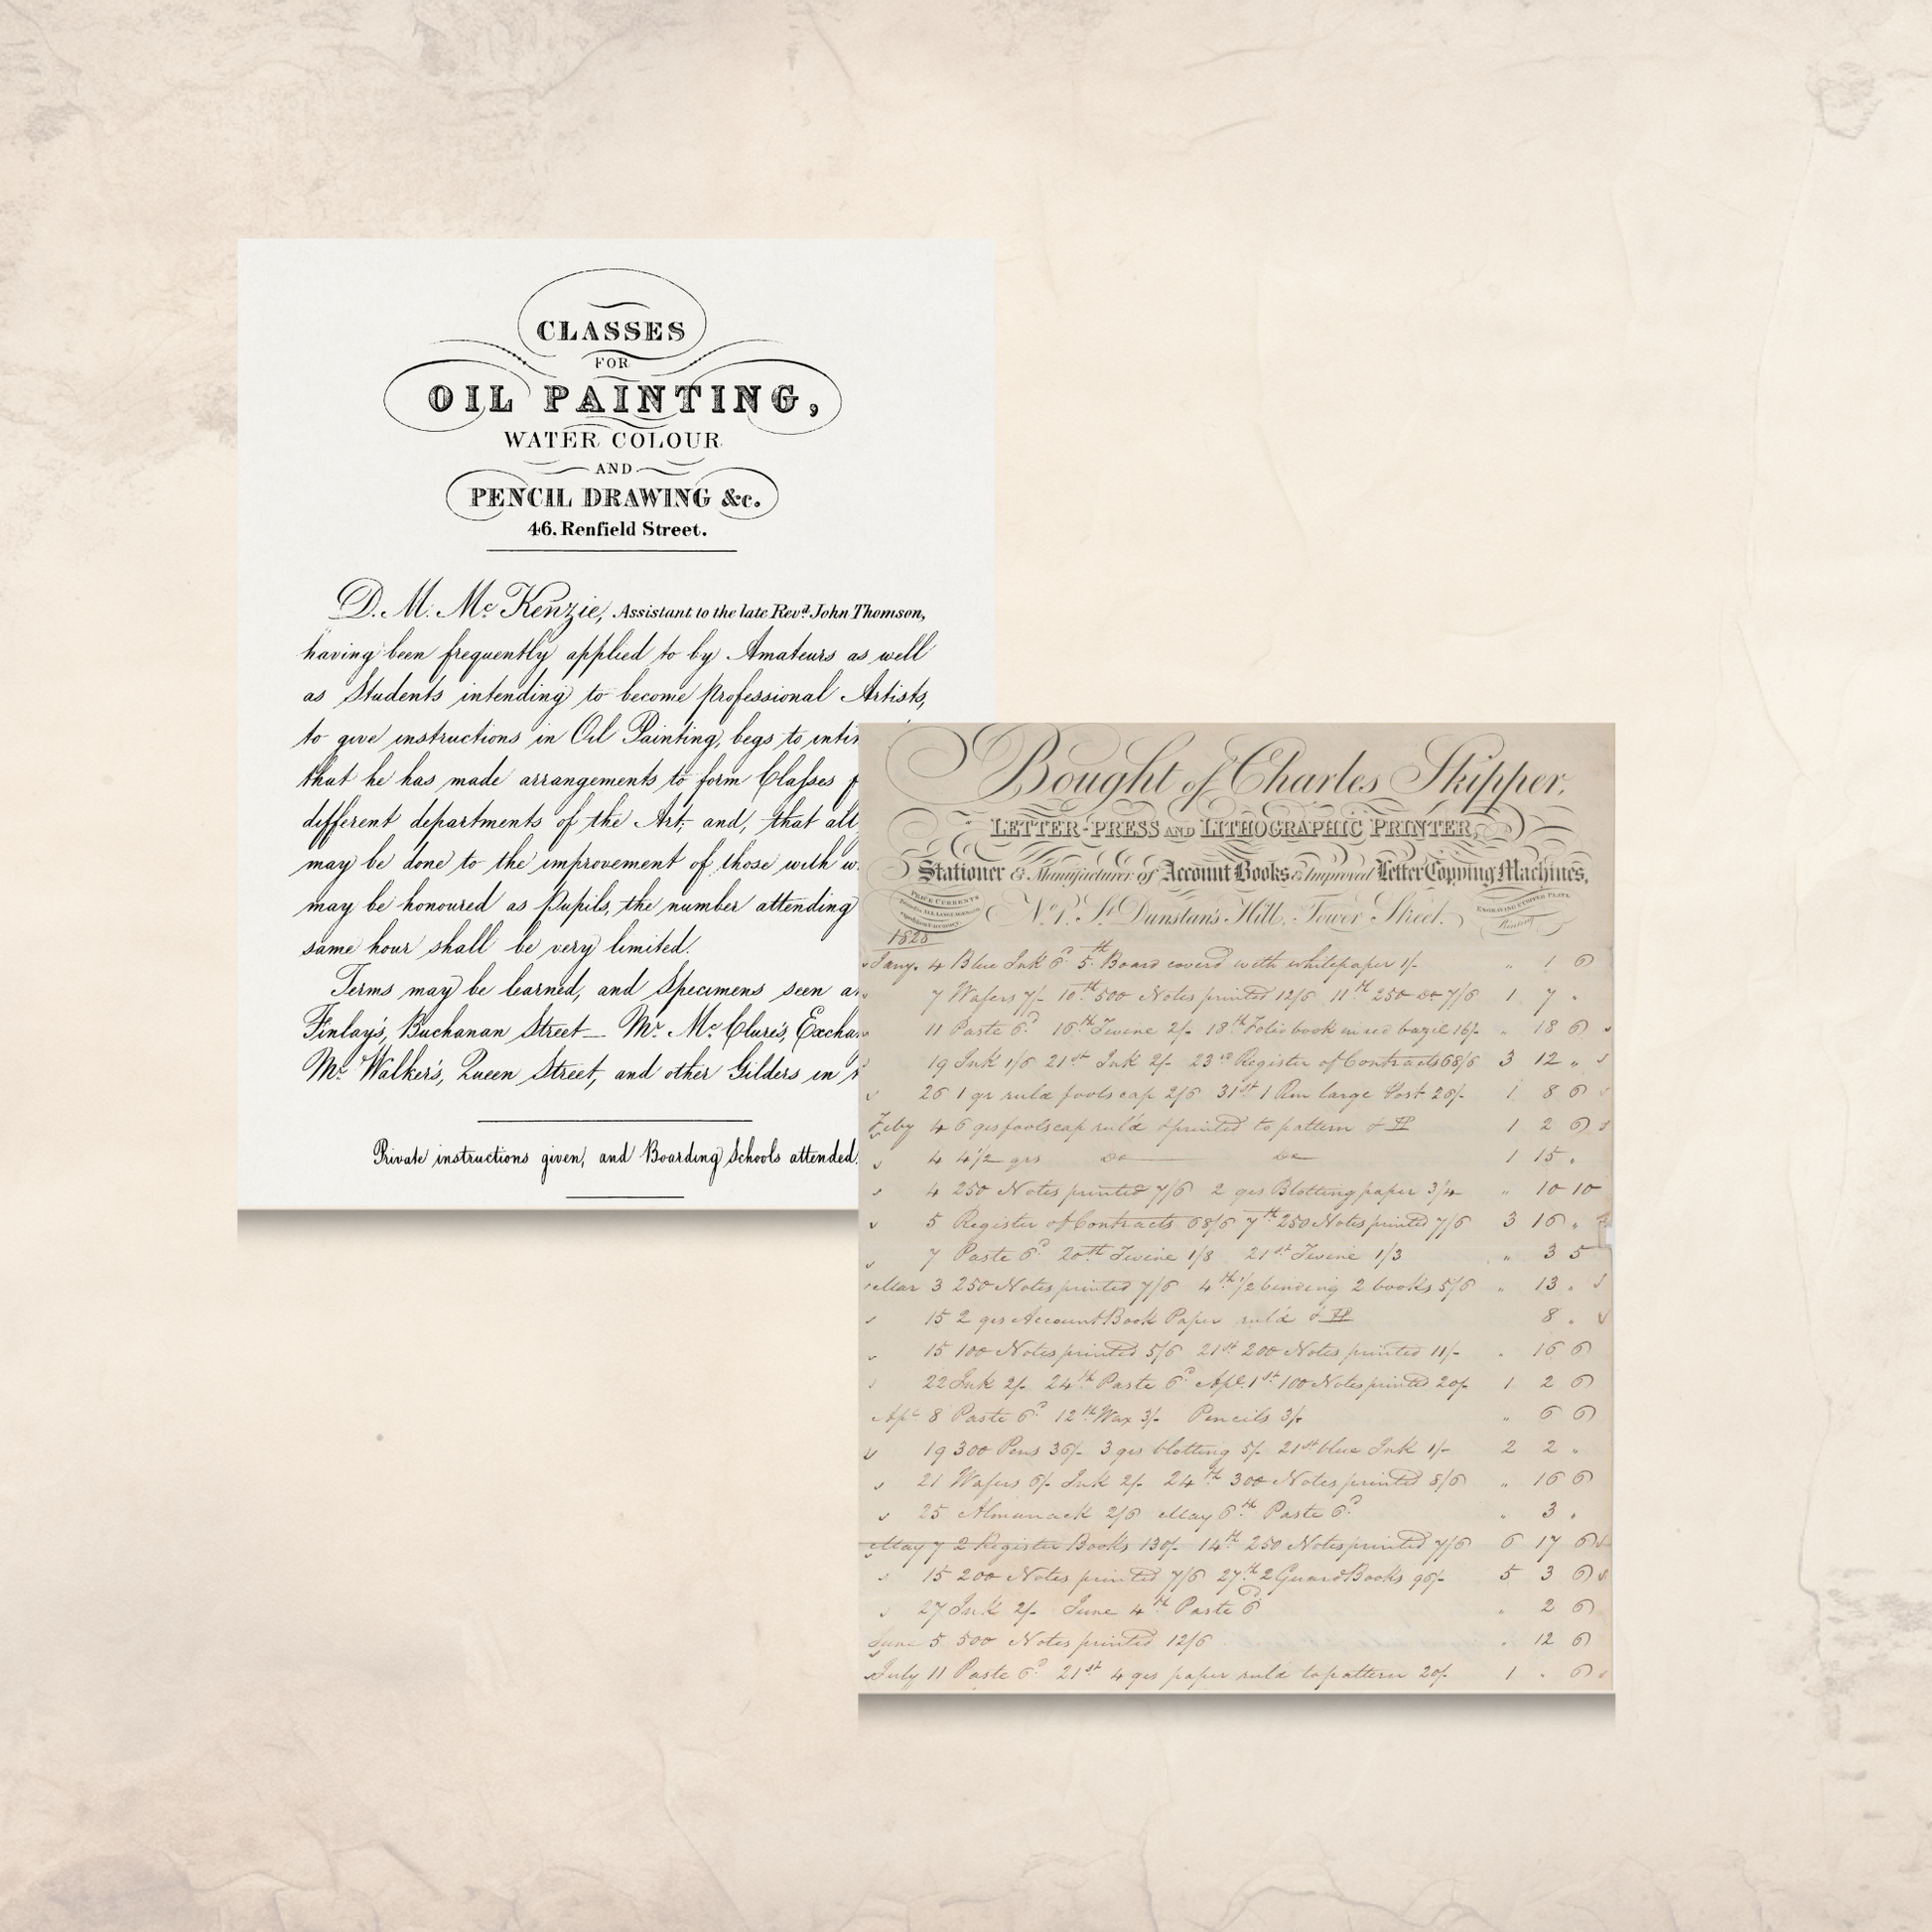 CLASSES
FOR
OIL PAINTING,
WATER COLOUR
AND
PENCIL DRAWING &c.
46. Renfield Street.
D. M. McKenzie, Assistant to the late Revd. John Thomson,
having been frequently applied to by Amateurs as well
as Students intending to become professional Artists,
to give instructions in Oil Painting, begs to
that he has made arrangements to form Claſses
different departments of the Art; and, that all
may be done to the improvement of those with
may be honoured as Pupils, the number attending
same hour shall be very limited.
Terms may be learned, and Specimens seen
Finlay's, Buchanan Street — Mr. McClure's,
Mr. Walker's, Queen Street, and other Gilders in
Private instructions given, and Boarding Schools attended.
Bought of Charles Skipper,
LETTER-PRESS AND LITHOGRAPHIC PRINTER,
Stationer & Manufacturer of Account Books & Improved Letter Copping Machines,
PRICE CURRENTS
No. 1. St. Dunstan's Hill, Tower Street.
ENGRAVING COPPER PLATE
Printing
1825
Jany. 4 Blue Ink 6d 5th Board coverd with whitepaper 1/- " 1 6
7 Wafers 7/- 10th 500 Notes printed 12/6 11th 250 do 7/6 1 7 "
11 Paste 6d 16th Twine 2/- 18th Folio book in red bazil 16/- " 18 6
19 Ink 1/6 21st Ink 2/- 23rd Register of Contracts 68/6 3 12 "
26 1 qr ruld foolscap 2/6 31st 1 Rm large Post 26/- 1 8 6
Feby 4 6 qrs foolscap ruld & printed to pattern 1 2 6
4 4 1/2 qrs do do 1 15 "
4 250 Notes printed 7/6 2 qrs Blotting paper 3/4 " 10 10
5 Register of Contracts 68/6 7th 250 Notes printed 7/6 3 16 "
7 Paste 6d 20th Twine 1/8 21st Twine 1/3 " 3 5
Mar 3 250 Notes printed 7/6 4th 1/2 binding 2 books 5/6 " 13 "
15 2 qrs Account Book Paper ruld 8 "
15 100 Notes printed 5/6 21st 200 Notes printed 11/- " 16 6
22 Ink 2/- 24th Paste 6d Apl. 1st 100 Notes printed 20/- 1 2 6
Apl 8 Paste 6d 12th Wax 3/- Pencils 3/- " 6 6
19 300 Pens 36/- 3 qrs blotting 5/- 21st blue Ink 1/- 2 2 "
21 Wafers 6/- Ink 2/- 24th 300 Notes printed 8/6 " 16 6
25 Almanack 2/6 May 6th Paste 6d " 3 "
May 7 2 Register Books 130/- 14th 250 Notes printed 7/6 6 17 6
15 200 Notes printed 7/6 27th 2 Guard Books 96/- 5 3 6
27 Ink 2/- June 4th Paste 6d " 2 6
June 5 500 Notes printed 12/6 " 12 6
July 11 Paste 6d 21st 4 qrs paper ruld to pattern 20/- 1 " 6